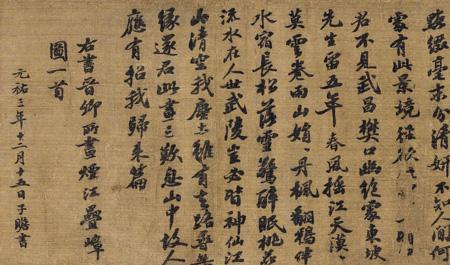 點綴毫末分清妍不知人間何
處有此景境徑欲
君不見武昌樊口幽絕處東坡
先生留五年春風搖江天漠〃
莫雲卷雨山娟〃丹楓翻鴉伴
水宿長松落雪驚醉眠桃花
流水在人世武陵豈必皆神仙江
山清空我塵土雖有去路尋無
緣還君此畫三歎息山中故人
應有招我歸來篇
右書晉卿所畫煙江疊嶂
圖一首
元祐三年十二月十五日子瞻書